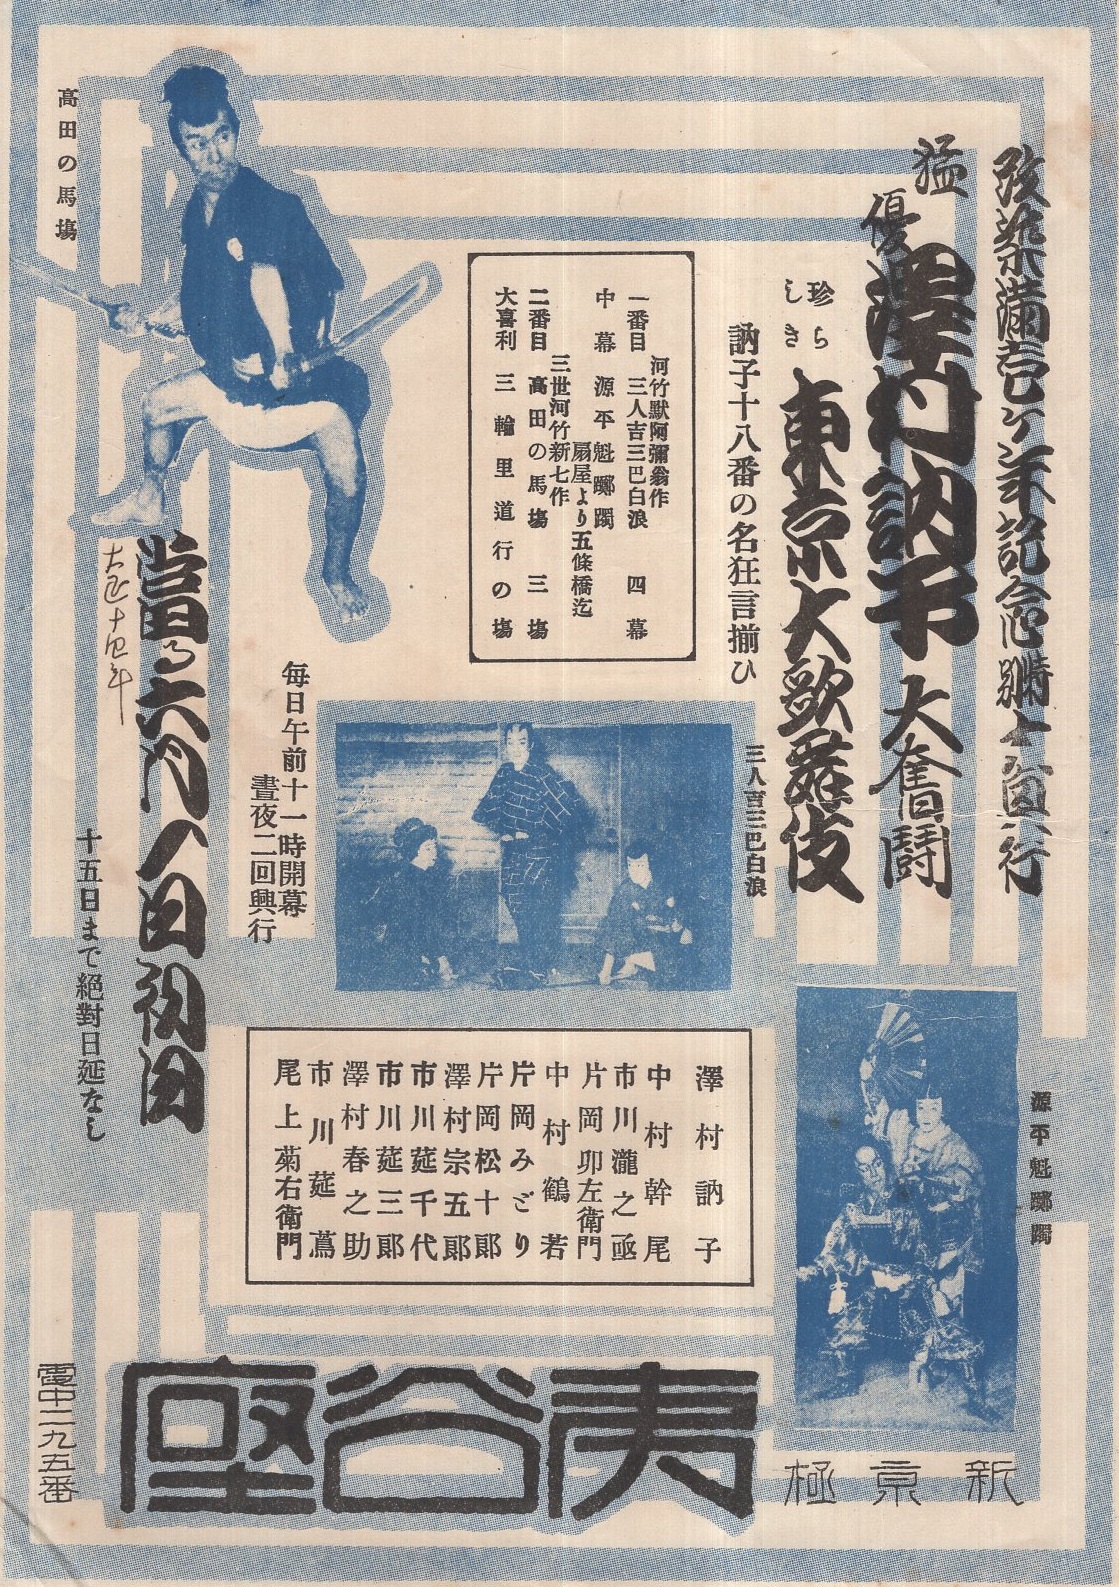 改築滿壱ケ年記念特別大興行
猛優
澤村訥子
大奮鬪
珍らしき
東京大歌舞伎
訥子十八番の名狂言揃ひ
河竹默阿彌翁作
一番目 三人吉三巴白浪 四幕
中幕 源平魁躑躅
扇屋より五條橋迄
三世河竹新七作
二番目 高田の馬塲 三塲
大喜利 三輪里道行の塲
高田の馬塲
三人吉三巴白浪
每日午前十一時開幕
晝夜二回興行
當る六月八日初日
大正十四年
十五日まで絕對日延なし
源平魁躑躅
澤村訥子
中村幹尾
市川瀧之亟
片岡卯左衞門
中村鶴若
片岡みどり
片岡松十郞
澤村宗五郞
市川莚千代
市川莚三郞
澤村春之助
市川莚蔦
尾上菊右衞門
新京極
夷谷座
電中二九五番